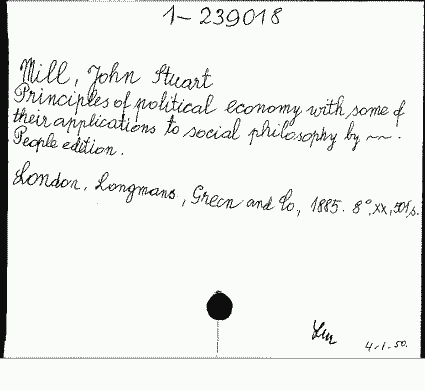 1-239018
Mill, John Stuart
Principles of political economy with some of
their applications to social philosophy by ~~.
People edition.
London, Longmans, Green and Co, 1885. 8°, xx, 591, s.
4-1-50.